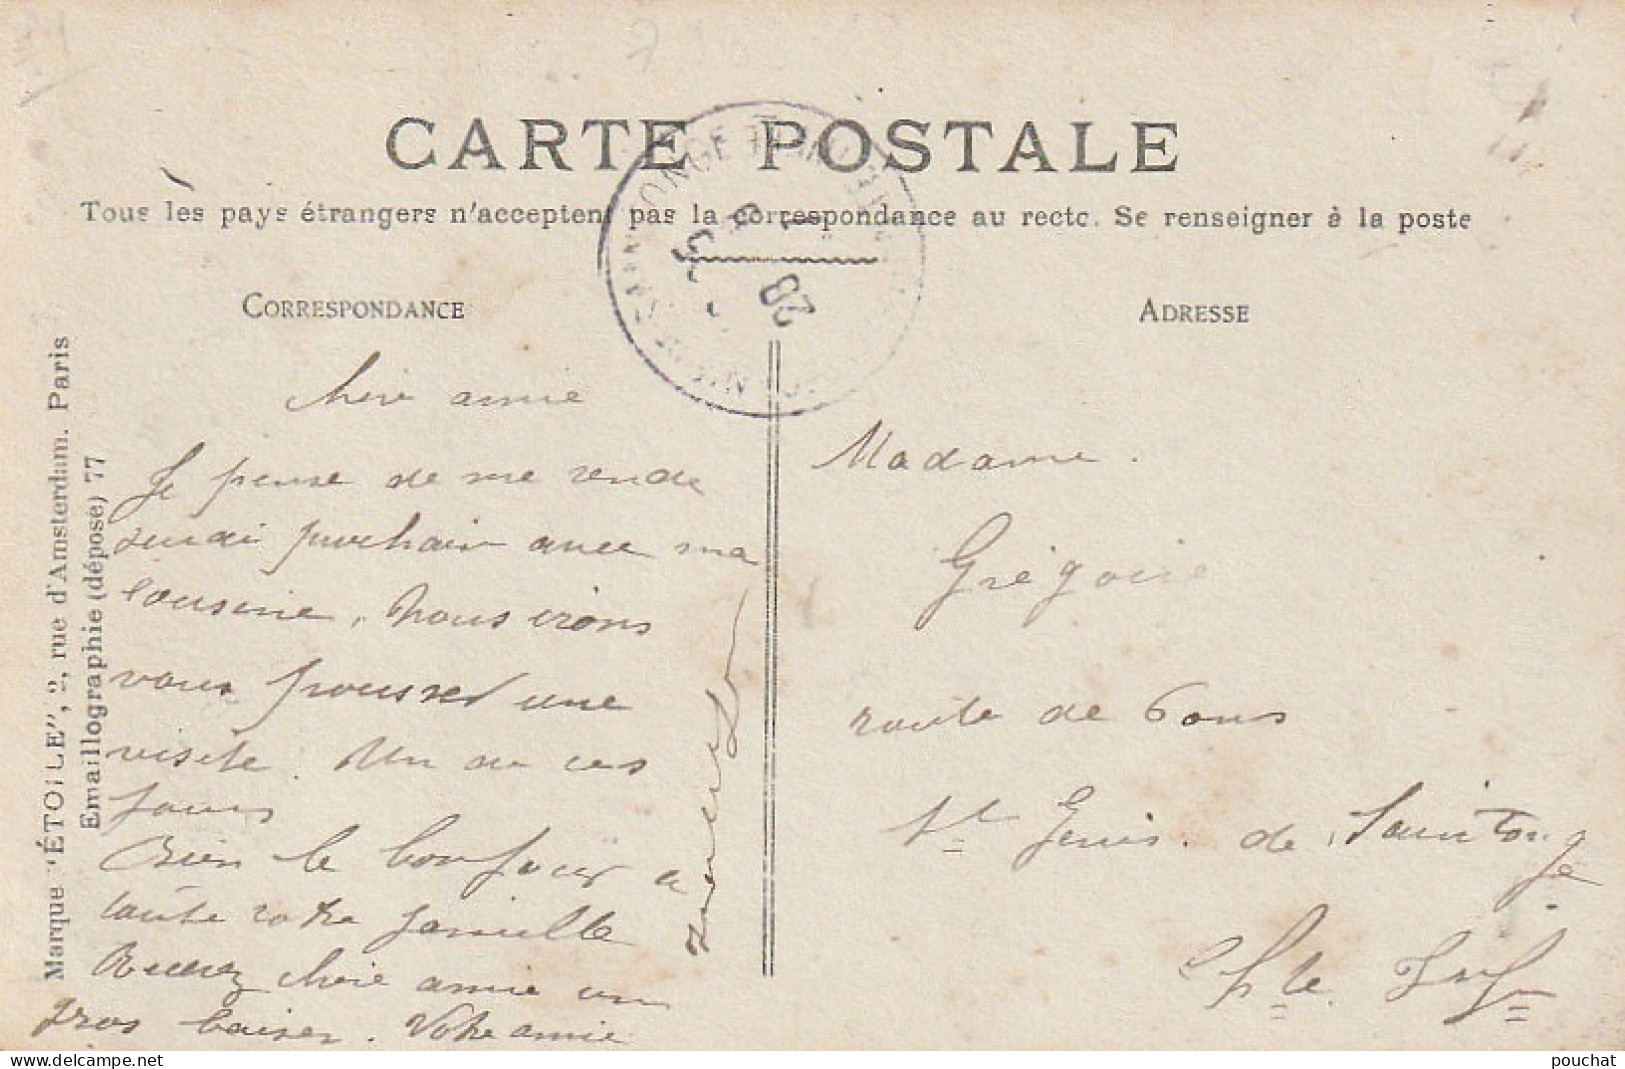 CARTE POSTALE
Tous les pays étrangers n'acceptent pas la correspondance au recto. Se renseigner à la poste
CORRESPONDANCE
ADRESSE
Marque "ÉTOILE", 2, rue d'Amsterdam. Paris
Emaillographie (déposé) 77
28
Chère amie
Je pense de me rende
prochain avec ma
cousine. Nous irons
vous pousser une
visite. Un de ces
jours
Bien le bonjour a
toute votre famille
Recevez chère amie un
gros baiser. Votre amie
Madame
Grégoire
route de
St Genis de Saintonge
Ch te Inf
pouchat